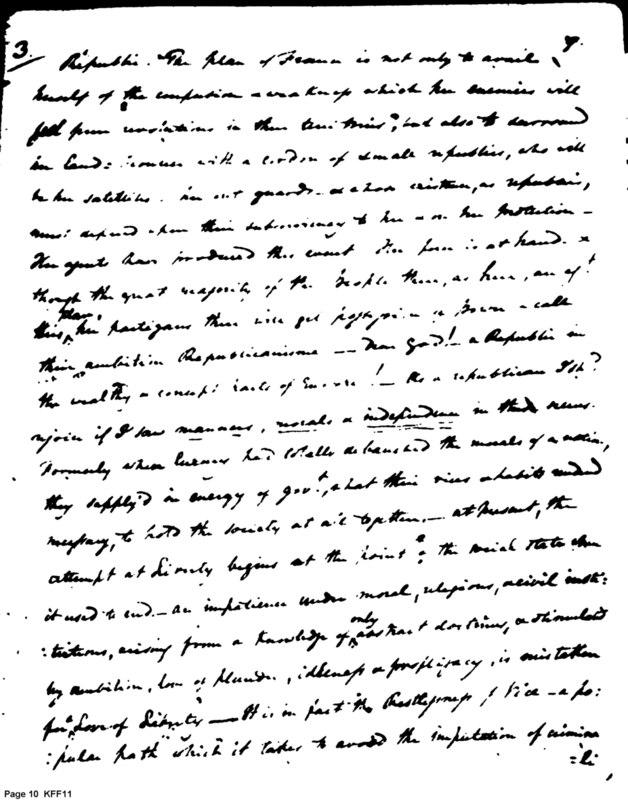 3. 9.
Republic. The plan of France is not only to avail
herself of the confusion & weakness which her enemies will
feel from revolutions in their territories, but also to surround
her land: frontier with a cordon of small republics, who will
be her satellites. her out guards. & whose existence, as republics,
must depend upon their subserviency to her & on her protection –
Her agents have produced this event Her force is at hand. &
though the great majority of the People there, as here, are ag.t
this plan, her partizans there will get possession of Power & call
their ambition Republicanism — Dear God! – a Republic in
the wealthy & corrupt parts of Europe! – As a republican I sh.d
rejoice if I saw manners, morals & independence in their scenes.
Formerly when luxury had totally debauched the morals of a nation,
they supply'd in energy of gov.t, what their vices & habits made
necessary, to hold the society at all together. — at present, the
attempt at Liberty begins at the point & the weak state where
it used to end. – an impatience under moral, religious, & civil insti:
:tutions, arising from a knowledge of only abstract doctrines, & stimulated
by ambition, love of plunder, idleness & profligacy, is mistaken
for a Love of Liberty — It is in fact the Restlessness of Vice – a po:
:pular path which it takes to avoid the imputation of crimina
=li
Page 10 KFF11